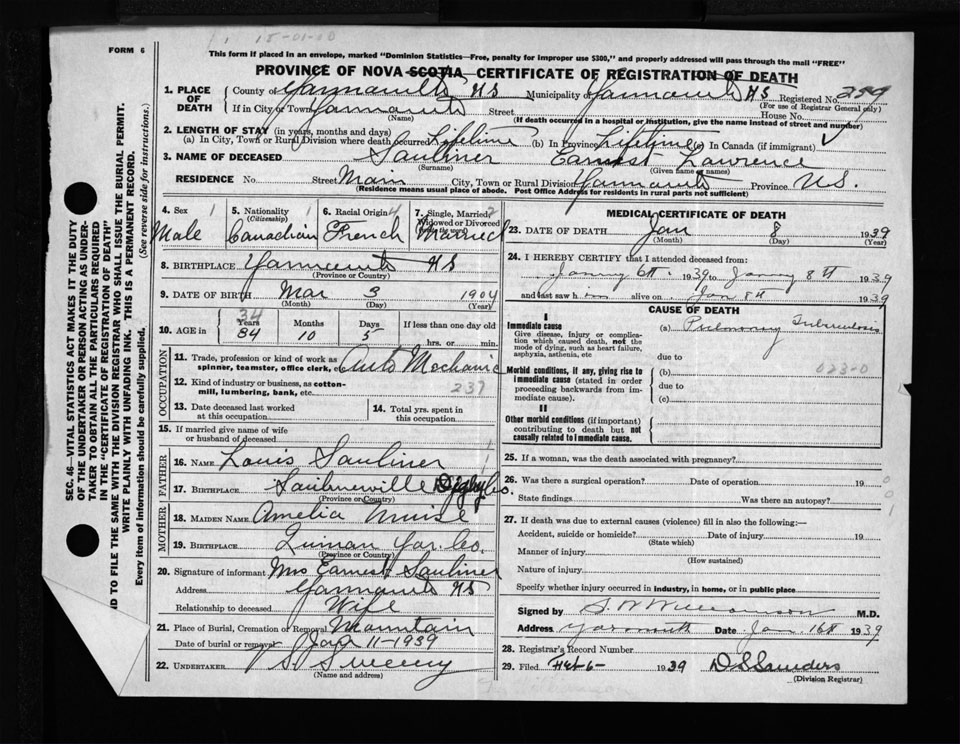 15-01-00
FORM 6
This form if placed in an envelope, marked "Dominion Statistics—Free, penalty for improper use $300," and properly addressed will pass through the mail "FREE"
PROVINCE OF NOVA SCOTIA CERTIFICATE OF REGISTRATION OF DEATH
1. PLACE OF DEATH
County of Yarmouth NS Municipality of Yarmouth NS Registered No. 259
(For use of Registrar General only)
If in City or Town Yarmouth Street House No.
(Name) (If death occurred in a hospital or institution, give the name instead of street and number)
2. LENGTH OF STAY (in years, months and days)
(a) In City, Town or Rural Division where death occurred Lifetime (b) In Province Lifetime (c) In Canada (if immigrant)
3. NAME OF DECEASED Saulnier Earnest Lawrence
(Surname) (Given name or names)
RESIDENCE No. Street Main City, Town or Rural Division Yarmouth Province N.S.
(Residence means usual place of abode. Post Office Address for residents in rural parts not sufficient)
4. Sex 5. Nationality (Citizenship) 6. Racial Origin 7. Single, Married, Widowed or Divorced
Male Canadian French Married
8. BIRTHPLACE Yarmouth NS
(Province or Country)
9. DATE OF BIRTH Mar 3 1904
(Month) (Day) (Year)
10. AGE in Years Months Days If less than one day old
34
34 10 5 hrs. or min.
OCCUPATION
11. Trade, profession or kind of work as spinner, teamster, office clerk, etc. Auto Mechanic
12. Kind of industry or business, as cotton-mill, lumbering, bank, etc. 237
13. Date deceased last worked at this occupation
14. Total yrs. spent in this occupation
15. If married give name of wife or husband of deceased
FATHER
16. NAME Louis Saulnier
17. BIRTHPLACE Saulnierville Digby Co.
(Province or Country)
MOTHER
18. MAIDEN NAME Amelia Muise
19. BIRTHPLACE Yar. Co.
(Province or Country)
20. Signature of informant Mrs Earnest Saulnier
Address Yarmouth NS
Relationship to deceased Wife
21. Place of Burial, Cremation or Removal Mountain
Date of burial or removal Jan 11-1939
22. UNDERTAKER Sweeny
(Name and address)
MEDICAL CERTIFICATE OF DEATH
23. DATE OF DEATH Jan 8 1939
(Month) (Day) (Year)
24. I HEREBY CERTIFY that I attended deceased from:
6th 1939 to 8th 1939
and last saw him alive on Jan 8th 1939
CAUSE OF DEATH
I
Immediate cause
Give disease, injury or complication which caused death, not the mode of dying, such as heart failure, asphyxia, asthenia, etc
(a) Pulmonary Tuberculosis
due to
023-0
Morbid conditions, if any, giving rise to immediate cause (stated in order proceeding backwards from immediate cause).
(b)
due to
(c)
II
Other morbid conditions (if important) contributing to death but not causally related to immediate cause.
25. If a woman, was the death associated with pregnancy?
26. Was there a surgical operation? Date of operation 19
State findings Was there an autopsy?
27. If death was due to external causes (violence) fill in also the following:—
Accident, suicide or homicide? Date of injury 19
(State which)
Manner of injury
(How sustained)
Nature of injury
Specify whether injury occurred in industry, in home, or in public place
Signed by S W Williamson M.D.
Address Yarmouth Date Jan 16th 1939
28. Registrar's Record Number
29. Filed Feb 6- 1939 D S Saunders
(Division Registrar)
SEC. 46—VITAL STATISTICS ACT MAKES IT THE DUTY
OF THE UNDERTAKER OR PERSON ACTING AS UNDER-
TAKER TO OBTAIN ALL THE PARTICULARS REQUIRED
IN THE "CERTIFICATE OF REGISTRATION OF DEATH"
ND TO FILE THE SAME WITH THE DIVISION REGISTRAR WHO SHALL ISSUE THE BURIAL PERMIT.
WRITE PLAINLY WITH UNFADING INK. THIS IS A PERMANENT RECORD.
Every item of information should be carefully supplied. (See reverse side for instructions.)